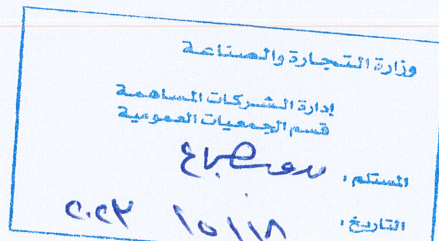 وزارة التجارة والصناعة
إدارة الشركات المساهمة
قسم الجمعيات العمومية
المستلم :
التاريخ : ١٨ / ٥ / ٢٠٢٣